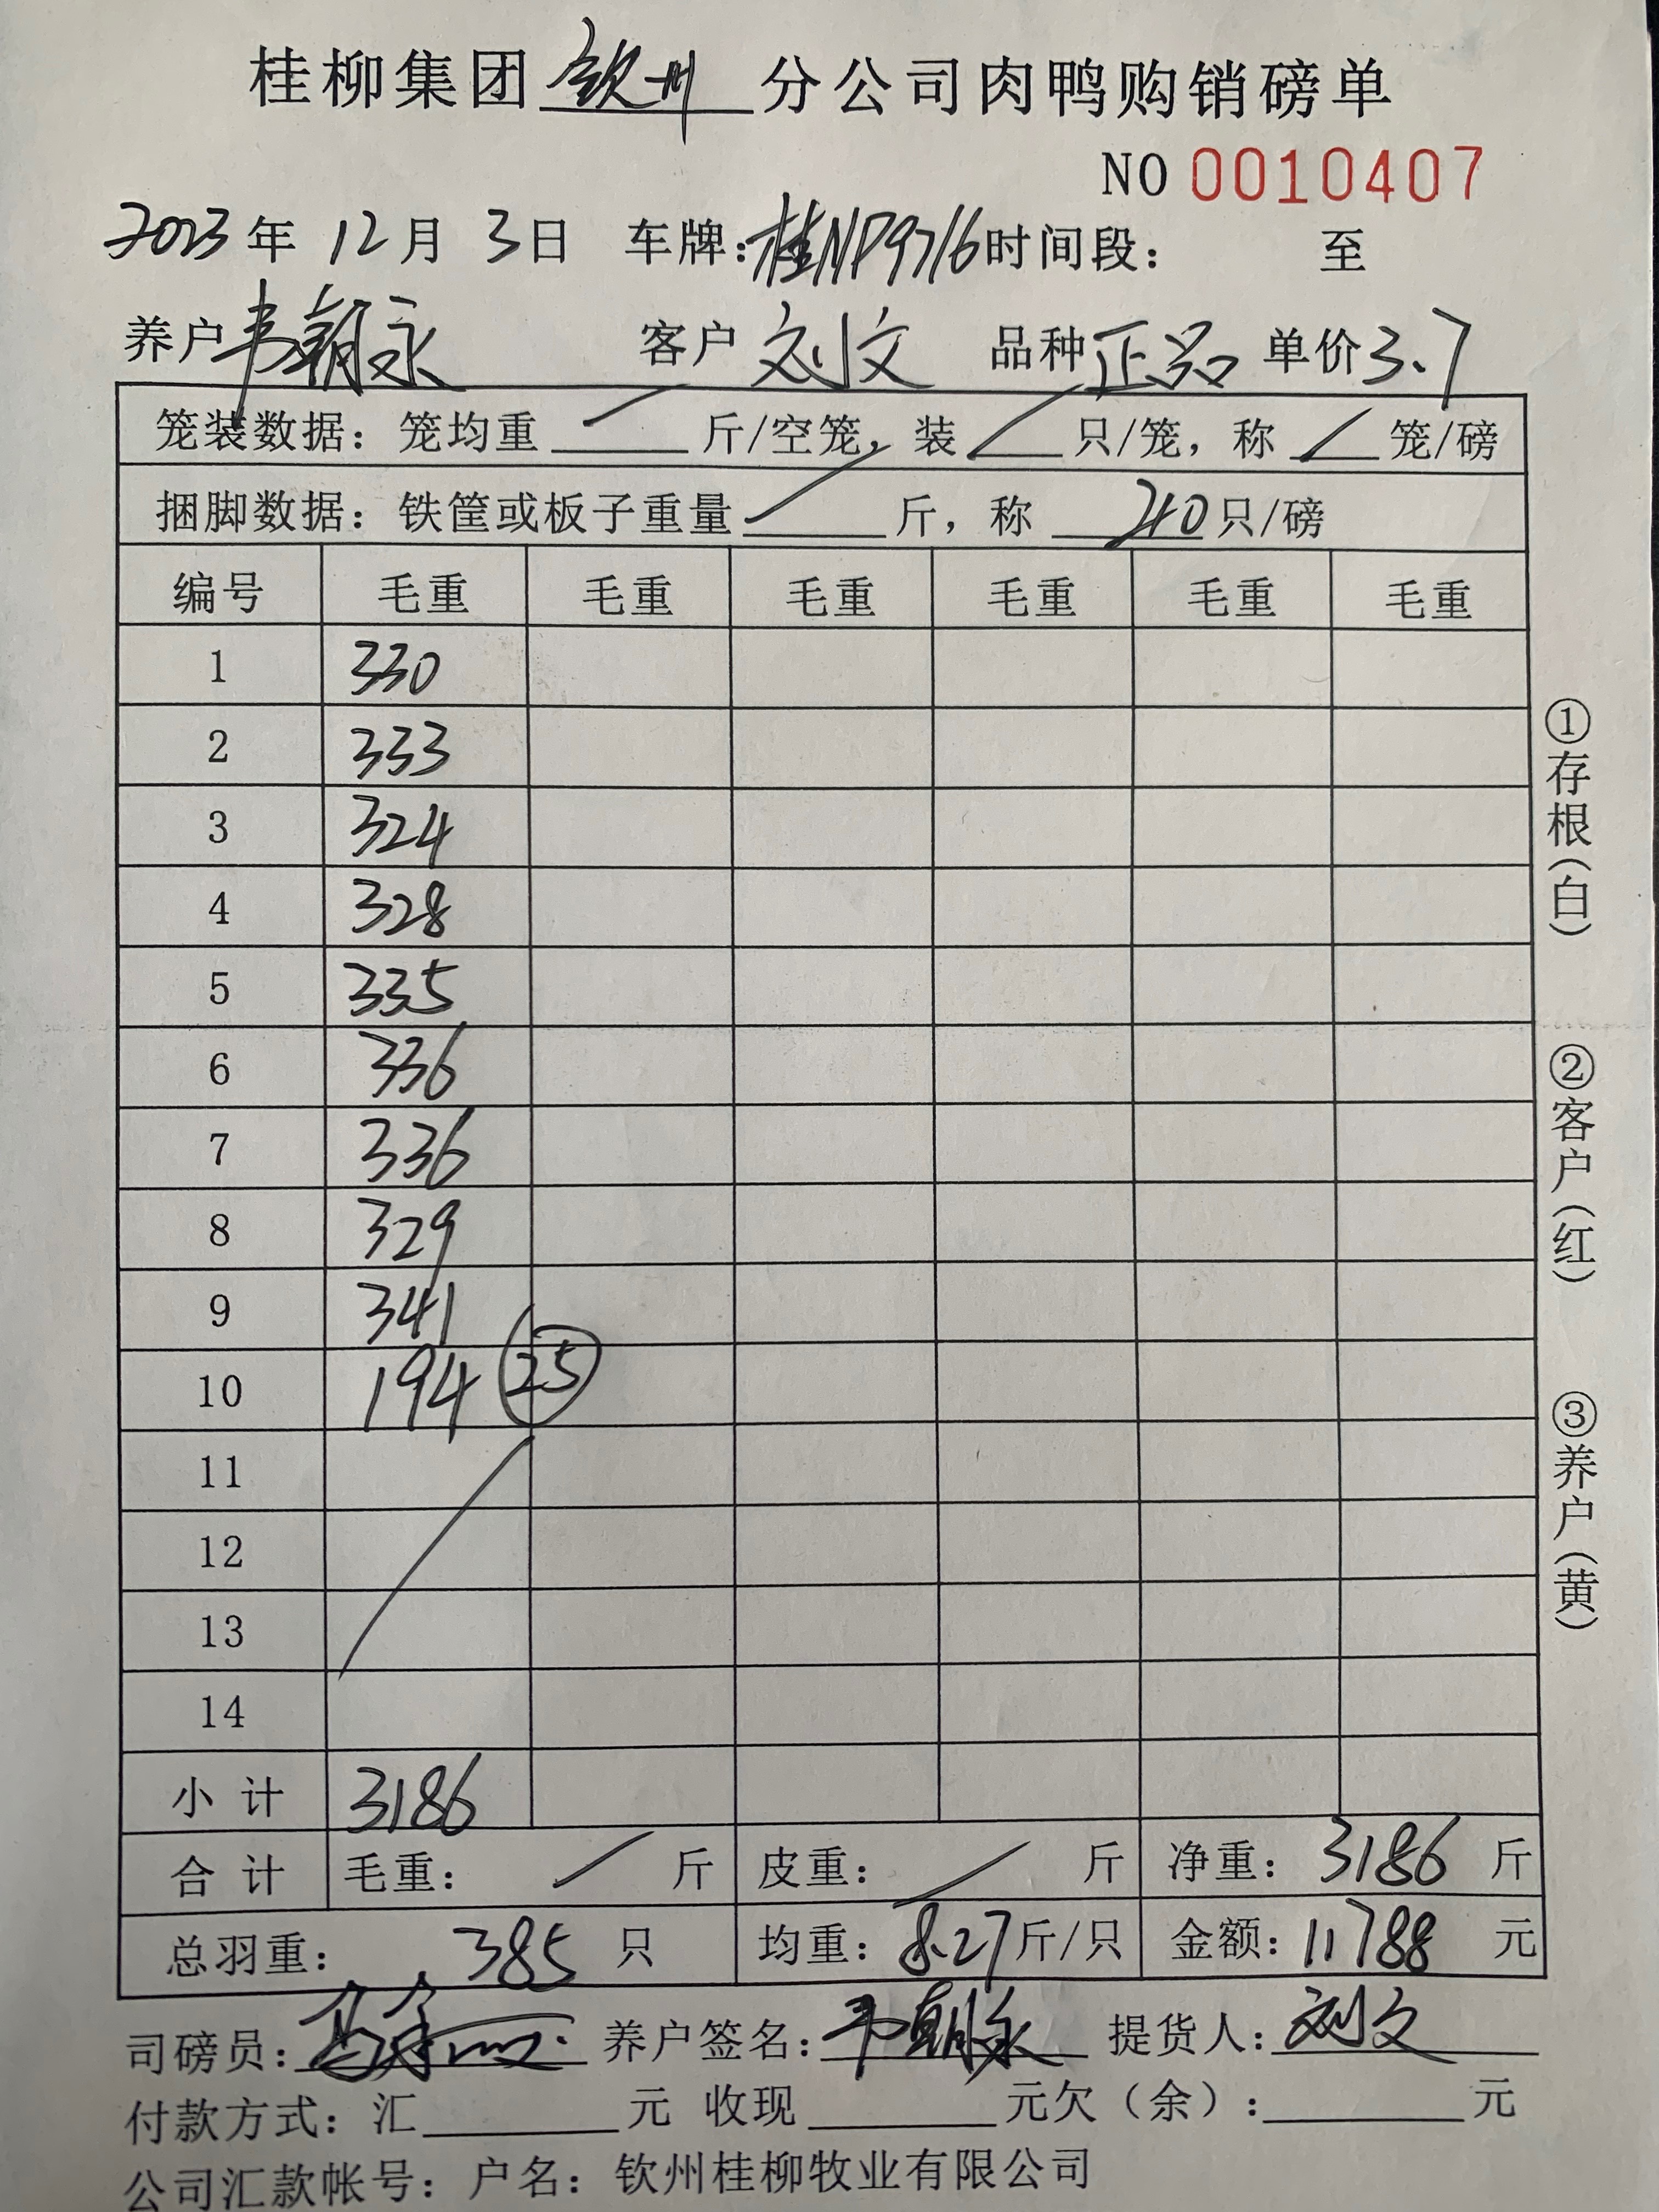 桂柳集团钦州分公司肉鸭购销磅单
NO 0010407
2023年12月3日 车牌:桂NP9716时间段: 至
养户韦朝永 客户刘文 品种正品 单价3.7
笼装数据:笼均重/斤/空笼,装/只/笼,称/笼/磅
捆脚数据:铁筐或板子重量/斤,称40只/磅
编号 毛重 毛重 毛重 毛重 毛重 毛重
1 330
2 333
3 324
4 328
5 335
6 336
7 336
8 329
9 341
10 194 (25)
11
12
13
14
小计 3186
合计 毛重:/斤 皮重:/斤 净重:3186斤
总羽重:385只 均重:8.27斤/只 金额:11788元
司磅员: 养户签名:韦朝永 提货人:刘文
付款方式:汇 元 收现 元欠(余):元
公司汇款帐号:户名:钦州桂柳牧业有限公司
①存根(白) ②客户(红) ③养户(黄)